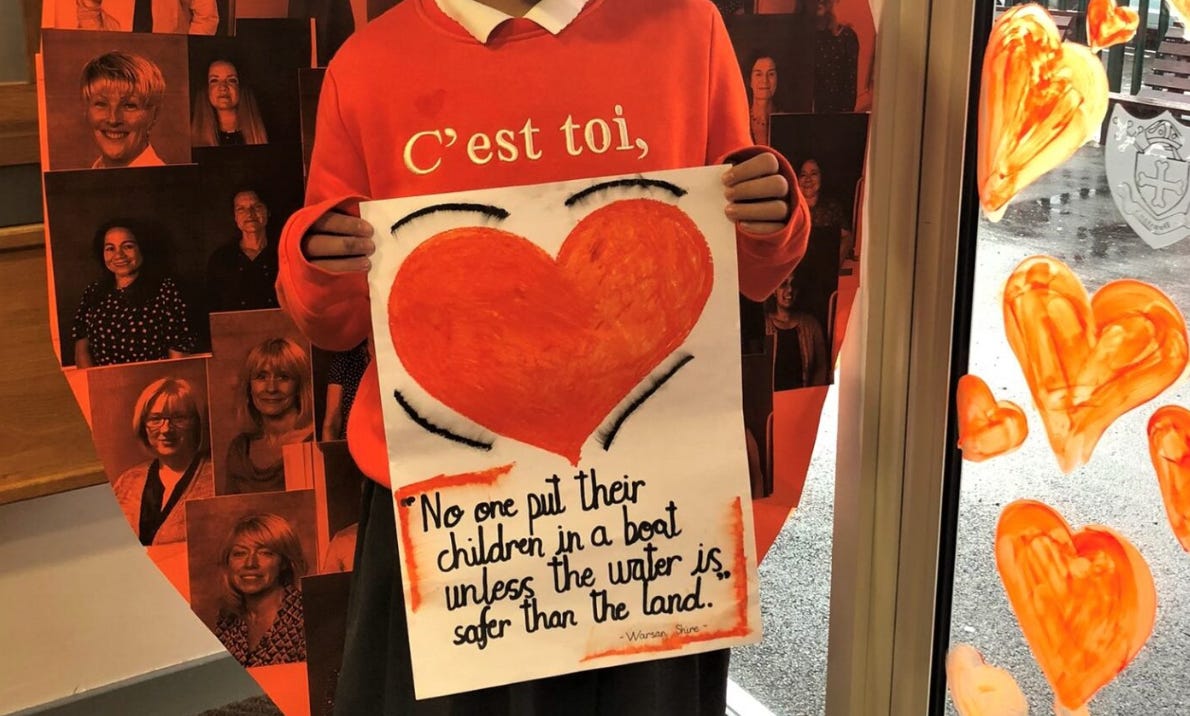 C'est toi,
"No one put their
children in a boat
unless the water is
safer than the land."
- Warsan Shire -